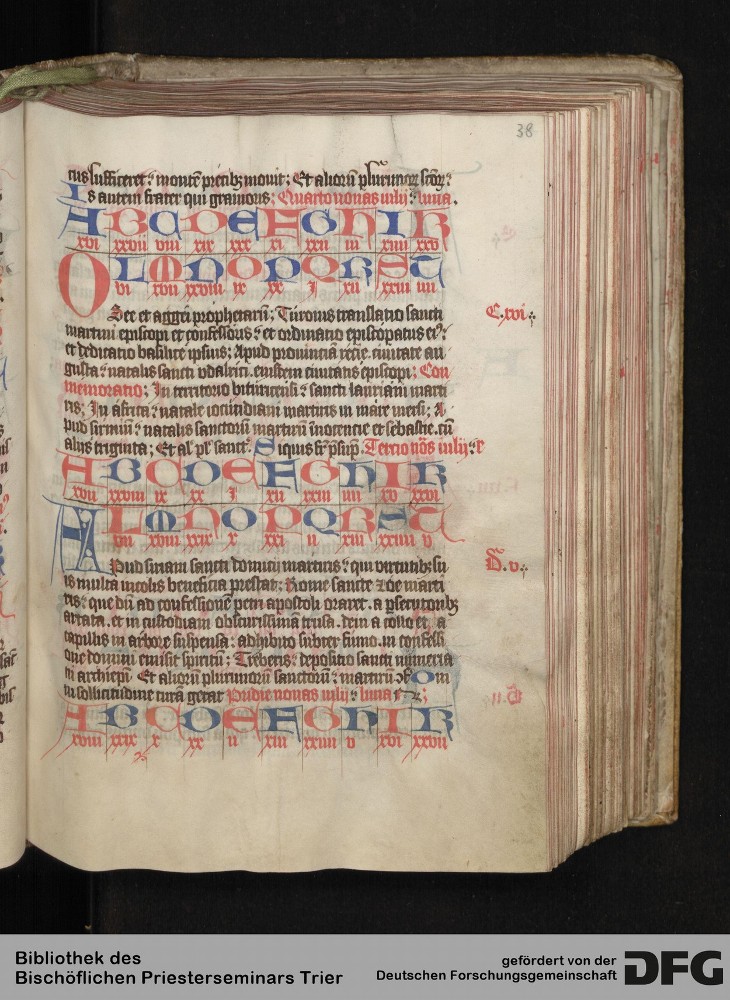 38
cius sufficeret : montē precibȝ movit ; Et alioꝝ plurimoꝝ scōꝝ :
Is autem frater qui graviori⁹ ; Quarto nonas iulij : luna .
A B C D E F G H I K
xvi xxvii viii xix xxx xi xxii iii xiiii xxv
L M N O P Q R S T
vi xvii xxviii ix xx i xii xxiii iiii
Osee et aggei prophetarū ; Turonis translatio sancti
C. xvi
martini episcopi et confessoris : et ordinatio episcopatus ei⁹ :
et dedicatio basilice ipsius ; Apud provintiā recie civitate au
gusta : natalis sancti udalrici eiusdem civitatis episcopi ; Com
memoratio ; In territorio bituricensi : sancti lauriani marti
ris ; In africa : natale iocundiani martiris in mare mersi ; A
pud sirmiū : natalis sanctorū martirū inocencie et sebastie cū
aliis triginta ; Et al' pl' sanct'. Siquis fr̄ p̄sūp. Tercio noñs iulij : l'
A B C D E F G H I K
xvii xxviii ix xx i xii xxiii iiii xv xxvi
L M N O P Q R S T
vii xviii xxix x xxi ii xiii xxiiii v
Apud siriam sancti domicij martiris : qui virtutibȝ su
D. v
is multa incolis beneficia prestat ; Rome sancte zoe marti
ris : que dū ad confessionē petri apostoli oraret . a p̄secutoribȝ
artata . et in custodiam obscurissimā trusa . dein a collo et a
capillis in arbore suspensa : adhibito subter fumo . in confessi
one domini emisit spiritū ; Treberis : depositio sancti numeria
ni archiep̄i Et aliorū plurimorū sanctorū : martirū Om
ni sollicitudine curā gerat Pridie nonas iulij : luna
A B C D E F G H I K
xviii xxix x xx ii xiii xxiiii v xvi xxvii
Bibliothek des
Bischöflichen Priesterseminars Trier
gefördert von der
Deutschen Forschungsgemeinschaft
DFG